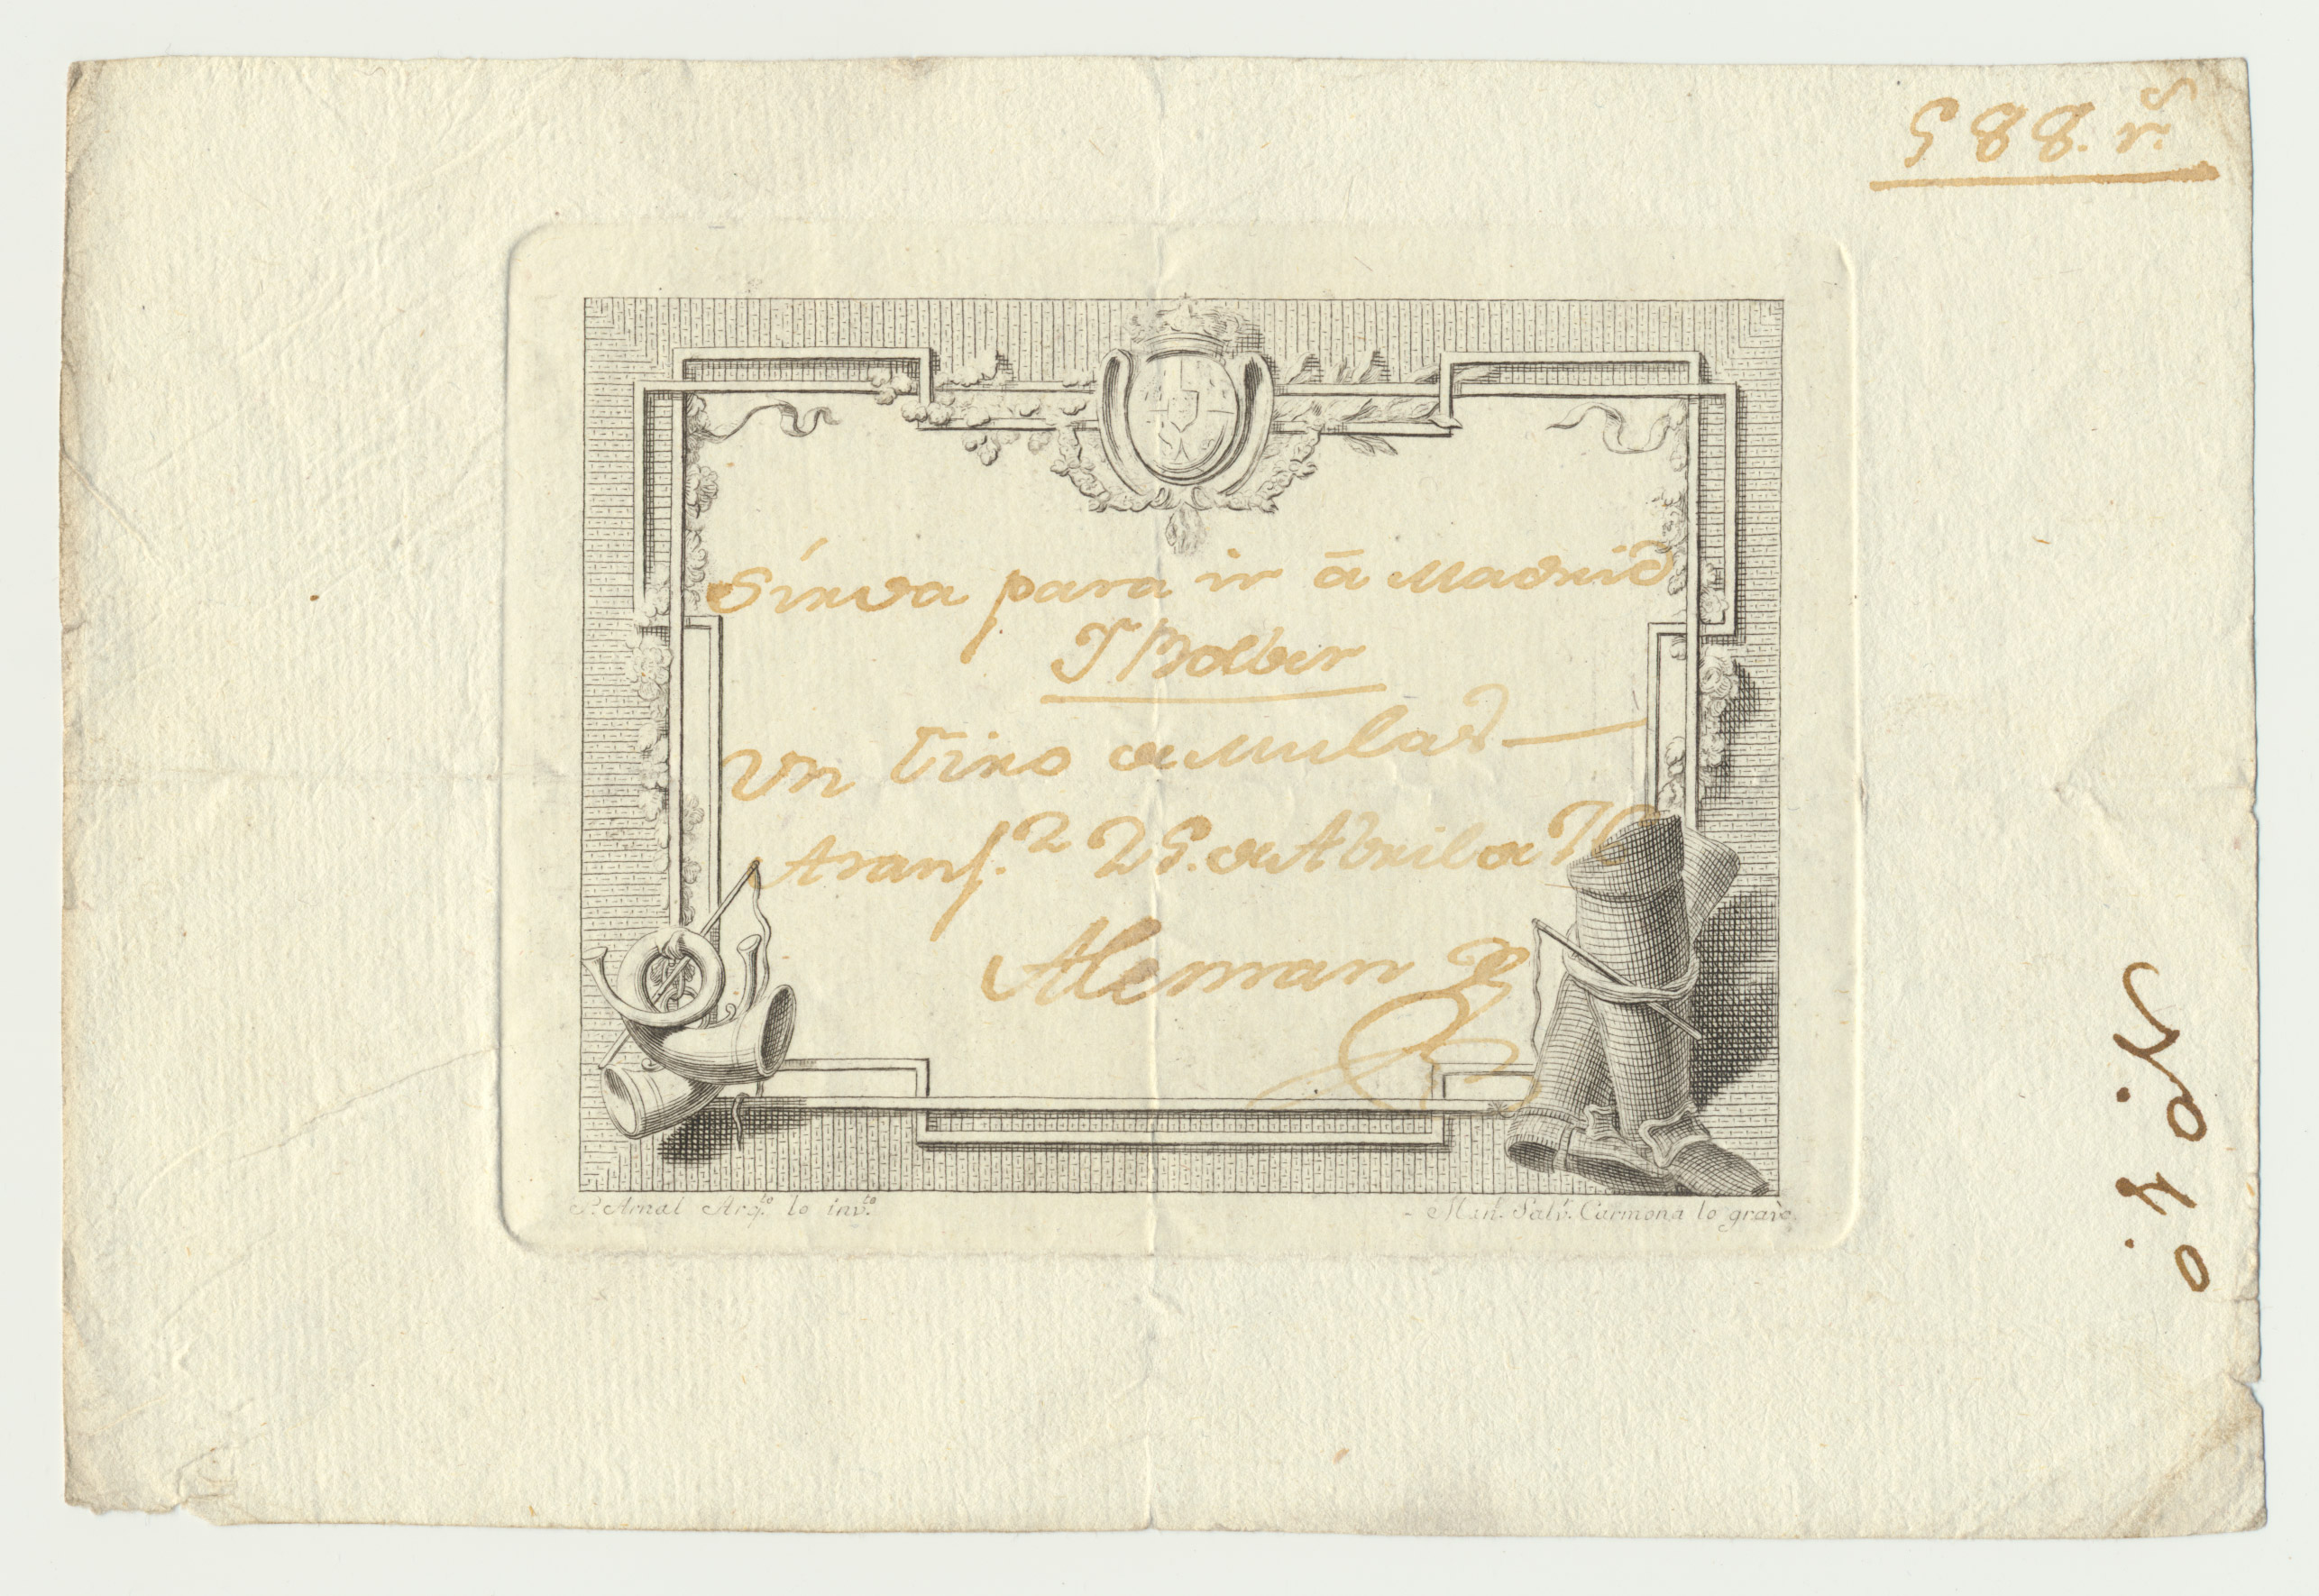 588. r.s
Sirva para ir á Madrid
Y Bolber
Un tiro de Mulas
Aranj.z 25. de Abril de
Aleman
N.o 4.o
P. Arnal Arq.to lo inv.to
Man.l Salv.r Carmona lo gravó.